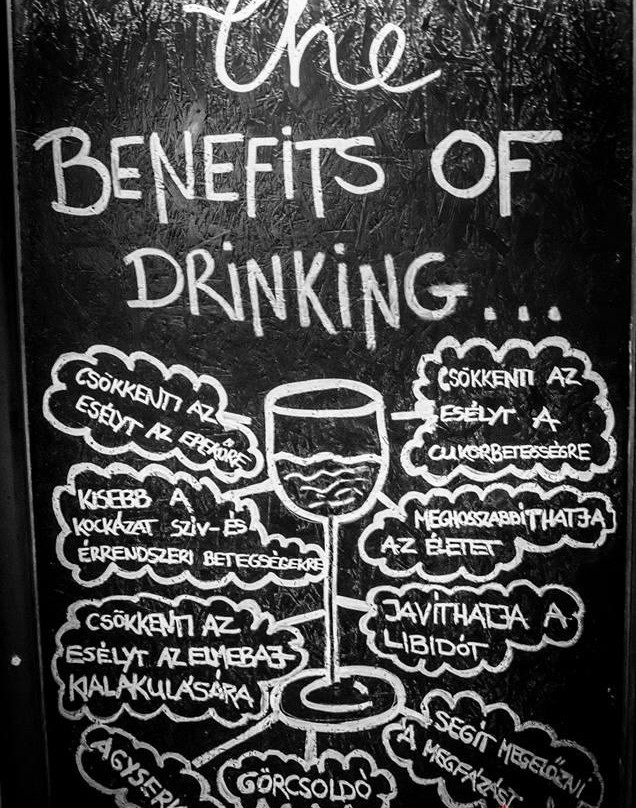 the
BENEFITS OF
DRINKING...
CSÖKKENTI AZ
ESÉLYT AZ EPEKŐRE
CSÖKKENTI AZ
ESÉLYT A
CUKORBETEGSÉGRE
KISEBB A
KOCKÁZAT SZÍV-ÉS
ÉRRENDSZERI BETEGSÉGEKRE
MEGHOSSZABBÍTHATJA
AZ ÉLETET
CSÖKKENTI AZ
ESÉLYT AZ ELMEBAJ
KIALAKULÁSÁRA
JAVÍTHATJA A
LIBIDÓT
GÖRCSOLDÓ
SEGÍT MEGELŐZNI
A MEGFÁZÁST